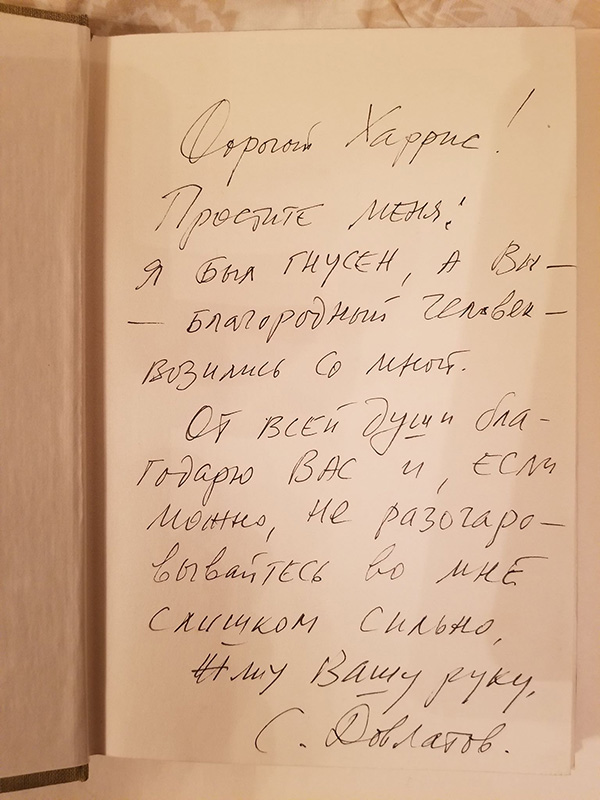 Дорогой Харрис!
Простите меня!
Я был гнусен, а Вы —
— благородный человек —
возились со мной.
От всей души бла-
годарю Вас и, если
можно, не разочаро-
вывайтесь во мне
слишком сильно,
Жму Вашу руку,
С. Довлатов.